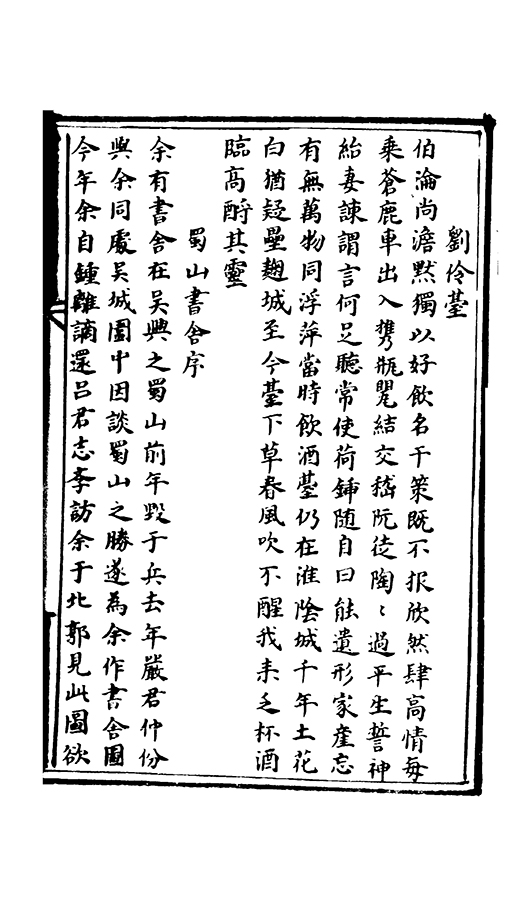 劉伶臺
伯淪尚澹默獨以好飲名干策既不报欣然肆高情每
乗蒼鹿車出入携瓶甖結交嵇阮徒陶〻過平生誓神
紿妻諫謂言何足聽常使荷鍤随自曰能遺形家産忘
有無萬物同浮萍當時飲酒臺仍在淮陰城千年土花
白猶疑壘麹城至今臺下草春風吹不醒我来乏杯酒
臨高酹其靈
蜀山書舍序
余有書舍在吳興之蜀山前年毀于兵去年嚴君仲份
與余同處吴城圍中因談蜀山之勝遂為余作書舍圖
今年余自鍾離謫還吕君志李訪余于北郭見此圖欲